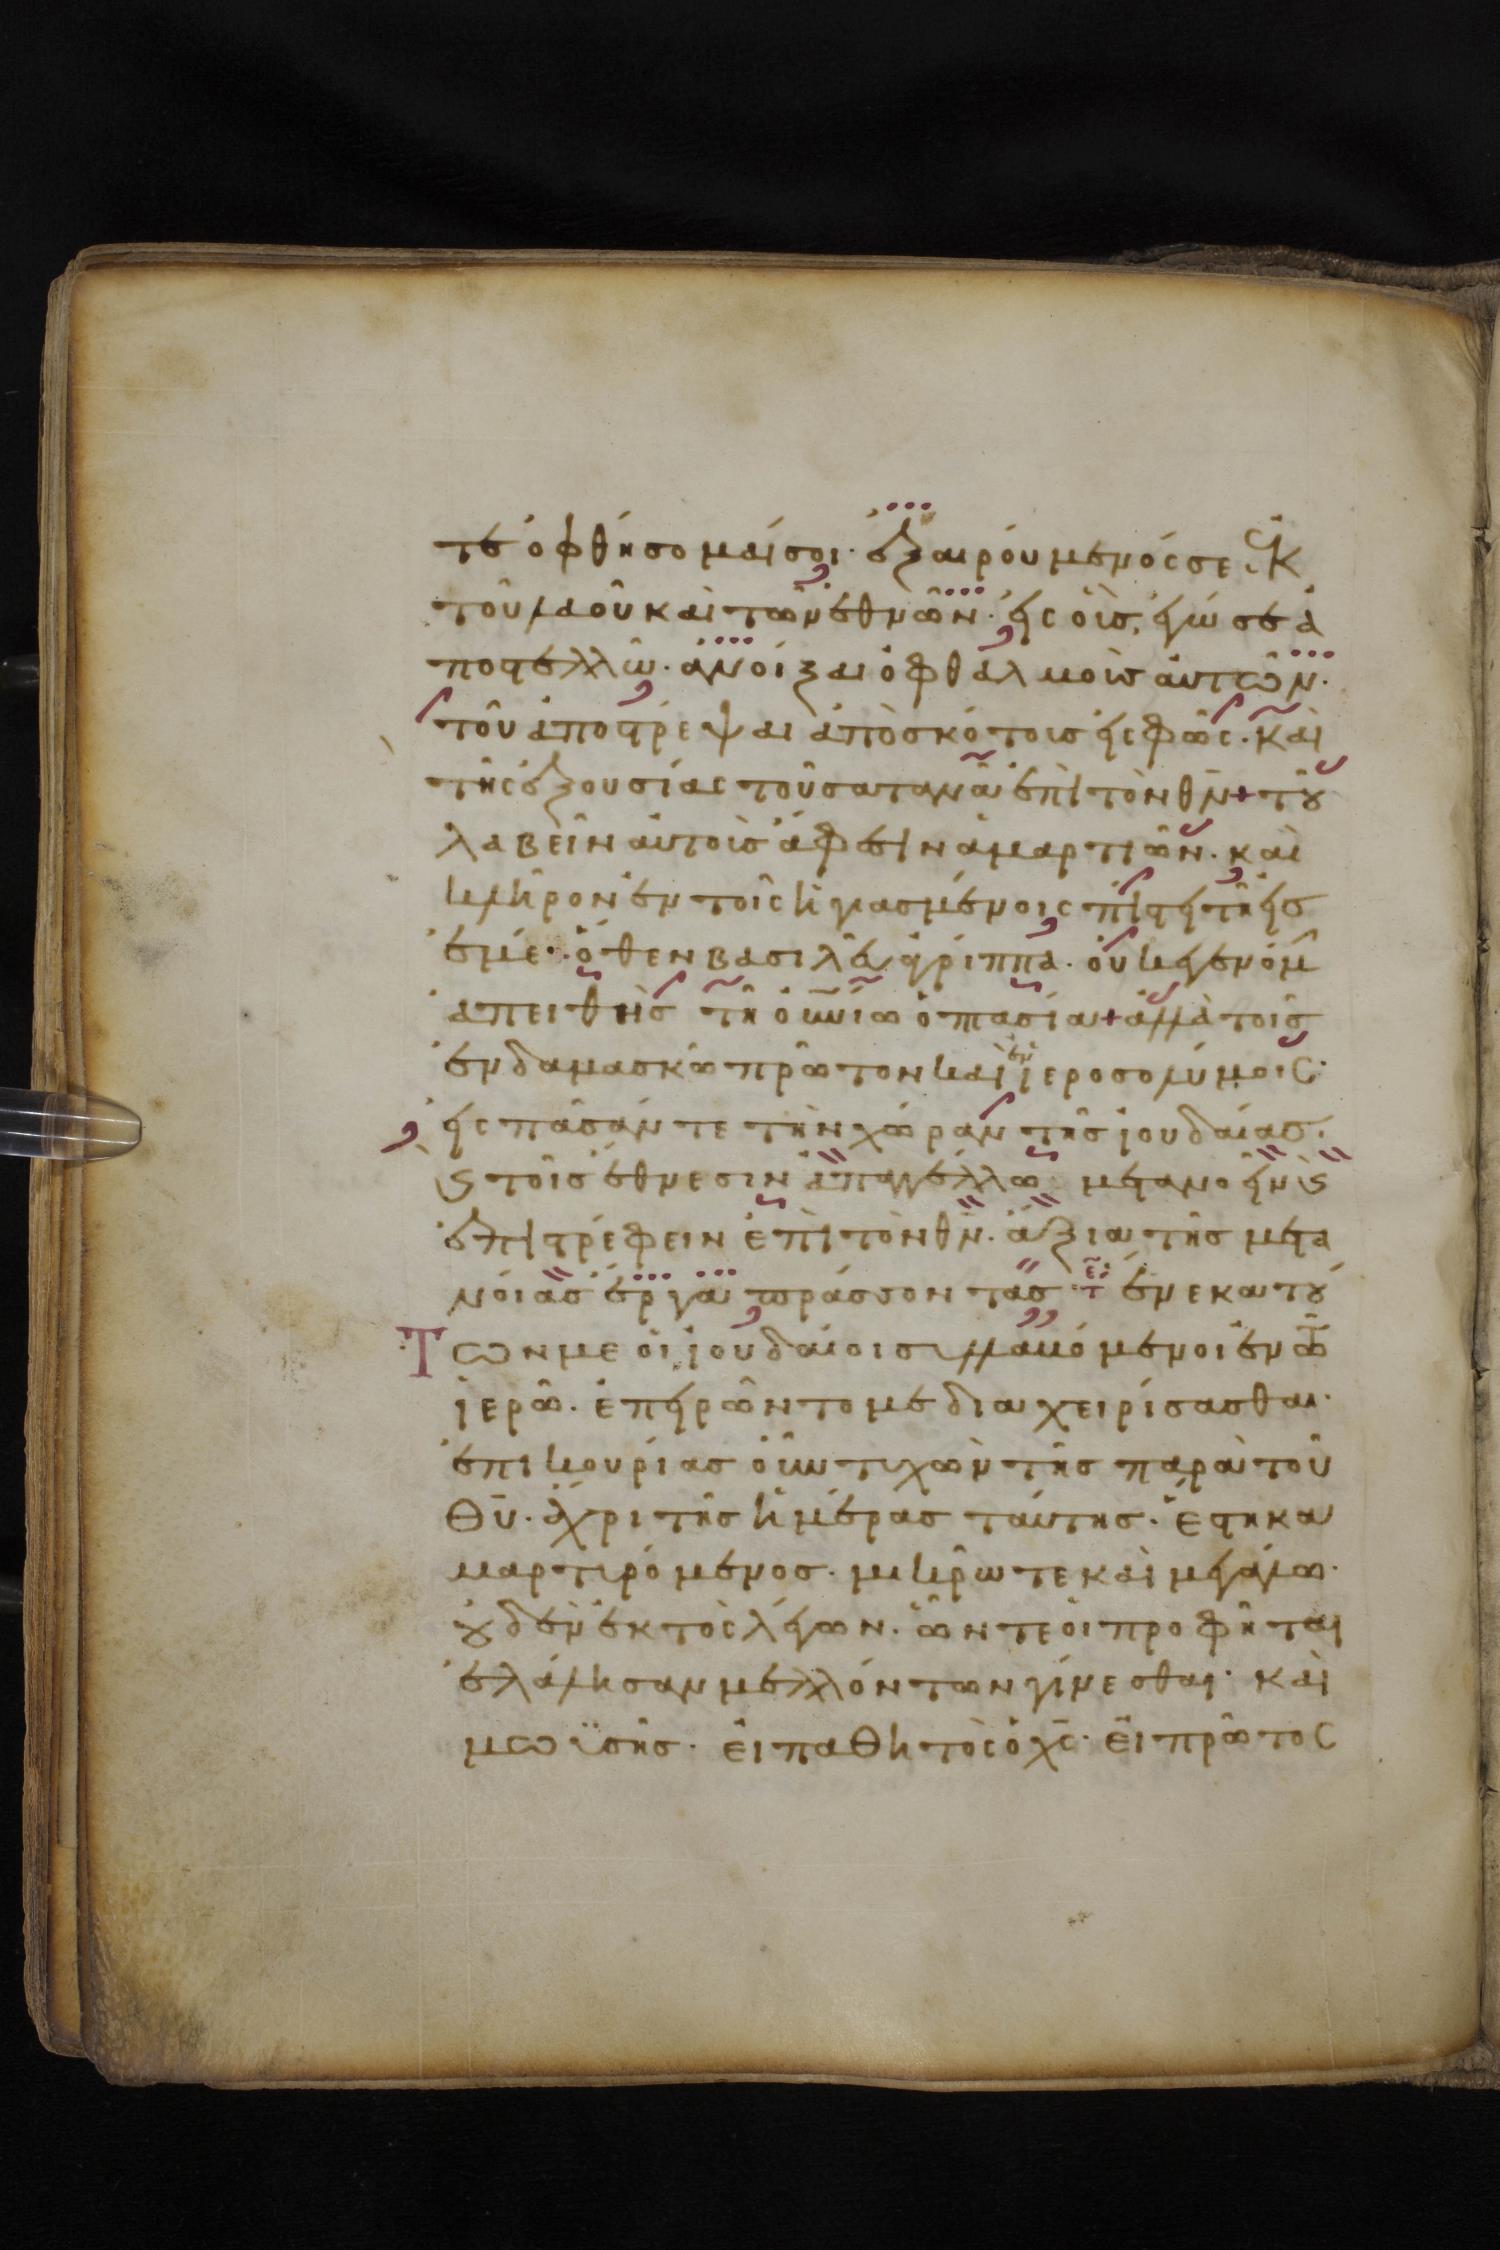 τε ὀφθήσομαί σοι· ἐξαιρούμενός σε ἐκ
τοῦ λαοῦ καὶ τῶν ἐθνῶν· εἰς οἷς, ἐγώ σε ἀ
ποστελλῶ· ἀνοίξαι ὀφθαλμοὺς αὐτῶν·
τοῦ ἀποστρέψαι ἀπὸ σκότους εἰς φῶς· καὶ
τῆς ἐξουσίας τοῦ σατανᾶ ἐπὶ τὸν θν + τοῦ
λαβεῖν αὐτοὺς ἄφεσιν ἁμαρτιῶν· καὶ
κλῆρον ἐν τοῖς ἡγιασμένοις πίστει τῆ εἰς
ἐμέ· ὅθεν βασιλεῦ ἀγρίππα· οὐκ ἐγενόμην
ἀπειθὴς τῆ οὐνίω ὀπτασία + ἀλλὰ τοῖς
ἐν δαμασκῶ πρῶτον καὶ ἐν ἱεροσολύμοις·
εἰς πᾶσάν τε τὴν χώραν τῆς ἰουδαίας·
καὶ τοῖς ἔθνεσιν ἀπαγγέλλω μετανοεῖν καὶ
ἐπιστρέφειν ἐπὶ τὸν θν· ἄξια τῆς μετα
νοίας ἔργα πράσσοντας· ἕνεκα τού
Των με οἱ ἰουδαῖοι συλλαβόμενοι ἐν τῶ
ἱερῶ· ἐπειρῶντό με διαχειρίσασθαι·
ἐπικουρίας οὖν τυχὼν τῆς παρὰ τοῦ
θυ· ἄχρι τῆς ἡμέρας ταύτης· ἕστηκα
μαρτυρόμενος· μικρῶ τε καὶ μεγάλω·
οὐδὲν ἐκτὸς λέγων· ὧν τε οἱ προφῆται
ἐλάλησαν μελλόντων γίνεσθαι· καὶ
μωϋσῆς· εἰ παθητὸς ὁ χς· εἰ πρῶτος